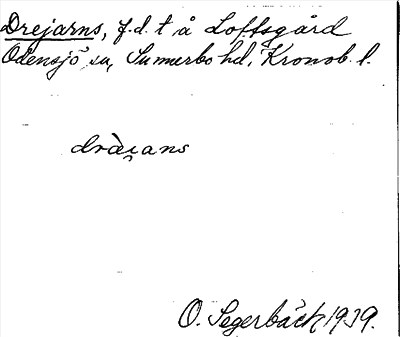 Drejarns, f.d.t å Loftsgård
Odensjö sn, Sunnerbo hd, Kronob. l.
drài̯ans
O. Segerbäck 1939.